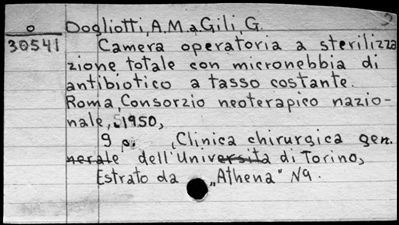 o Dogliotti, A.M. a Gili G
30541 Camera operatoria a sterilizza
zione totale con micronebbia di
antibiotico a tasso costante.
Roma, Consorzio neoterapico nazio-
nale, 1950,
9 p. , Clinica chirurgica gen.
nerale dell'Università di Torino,
Estrato da "Athena" N9.